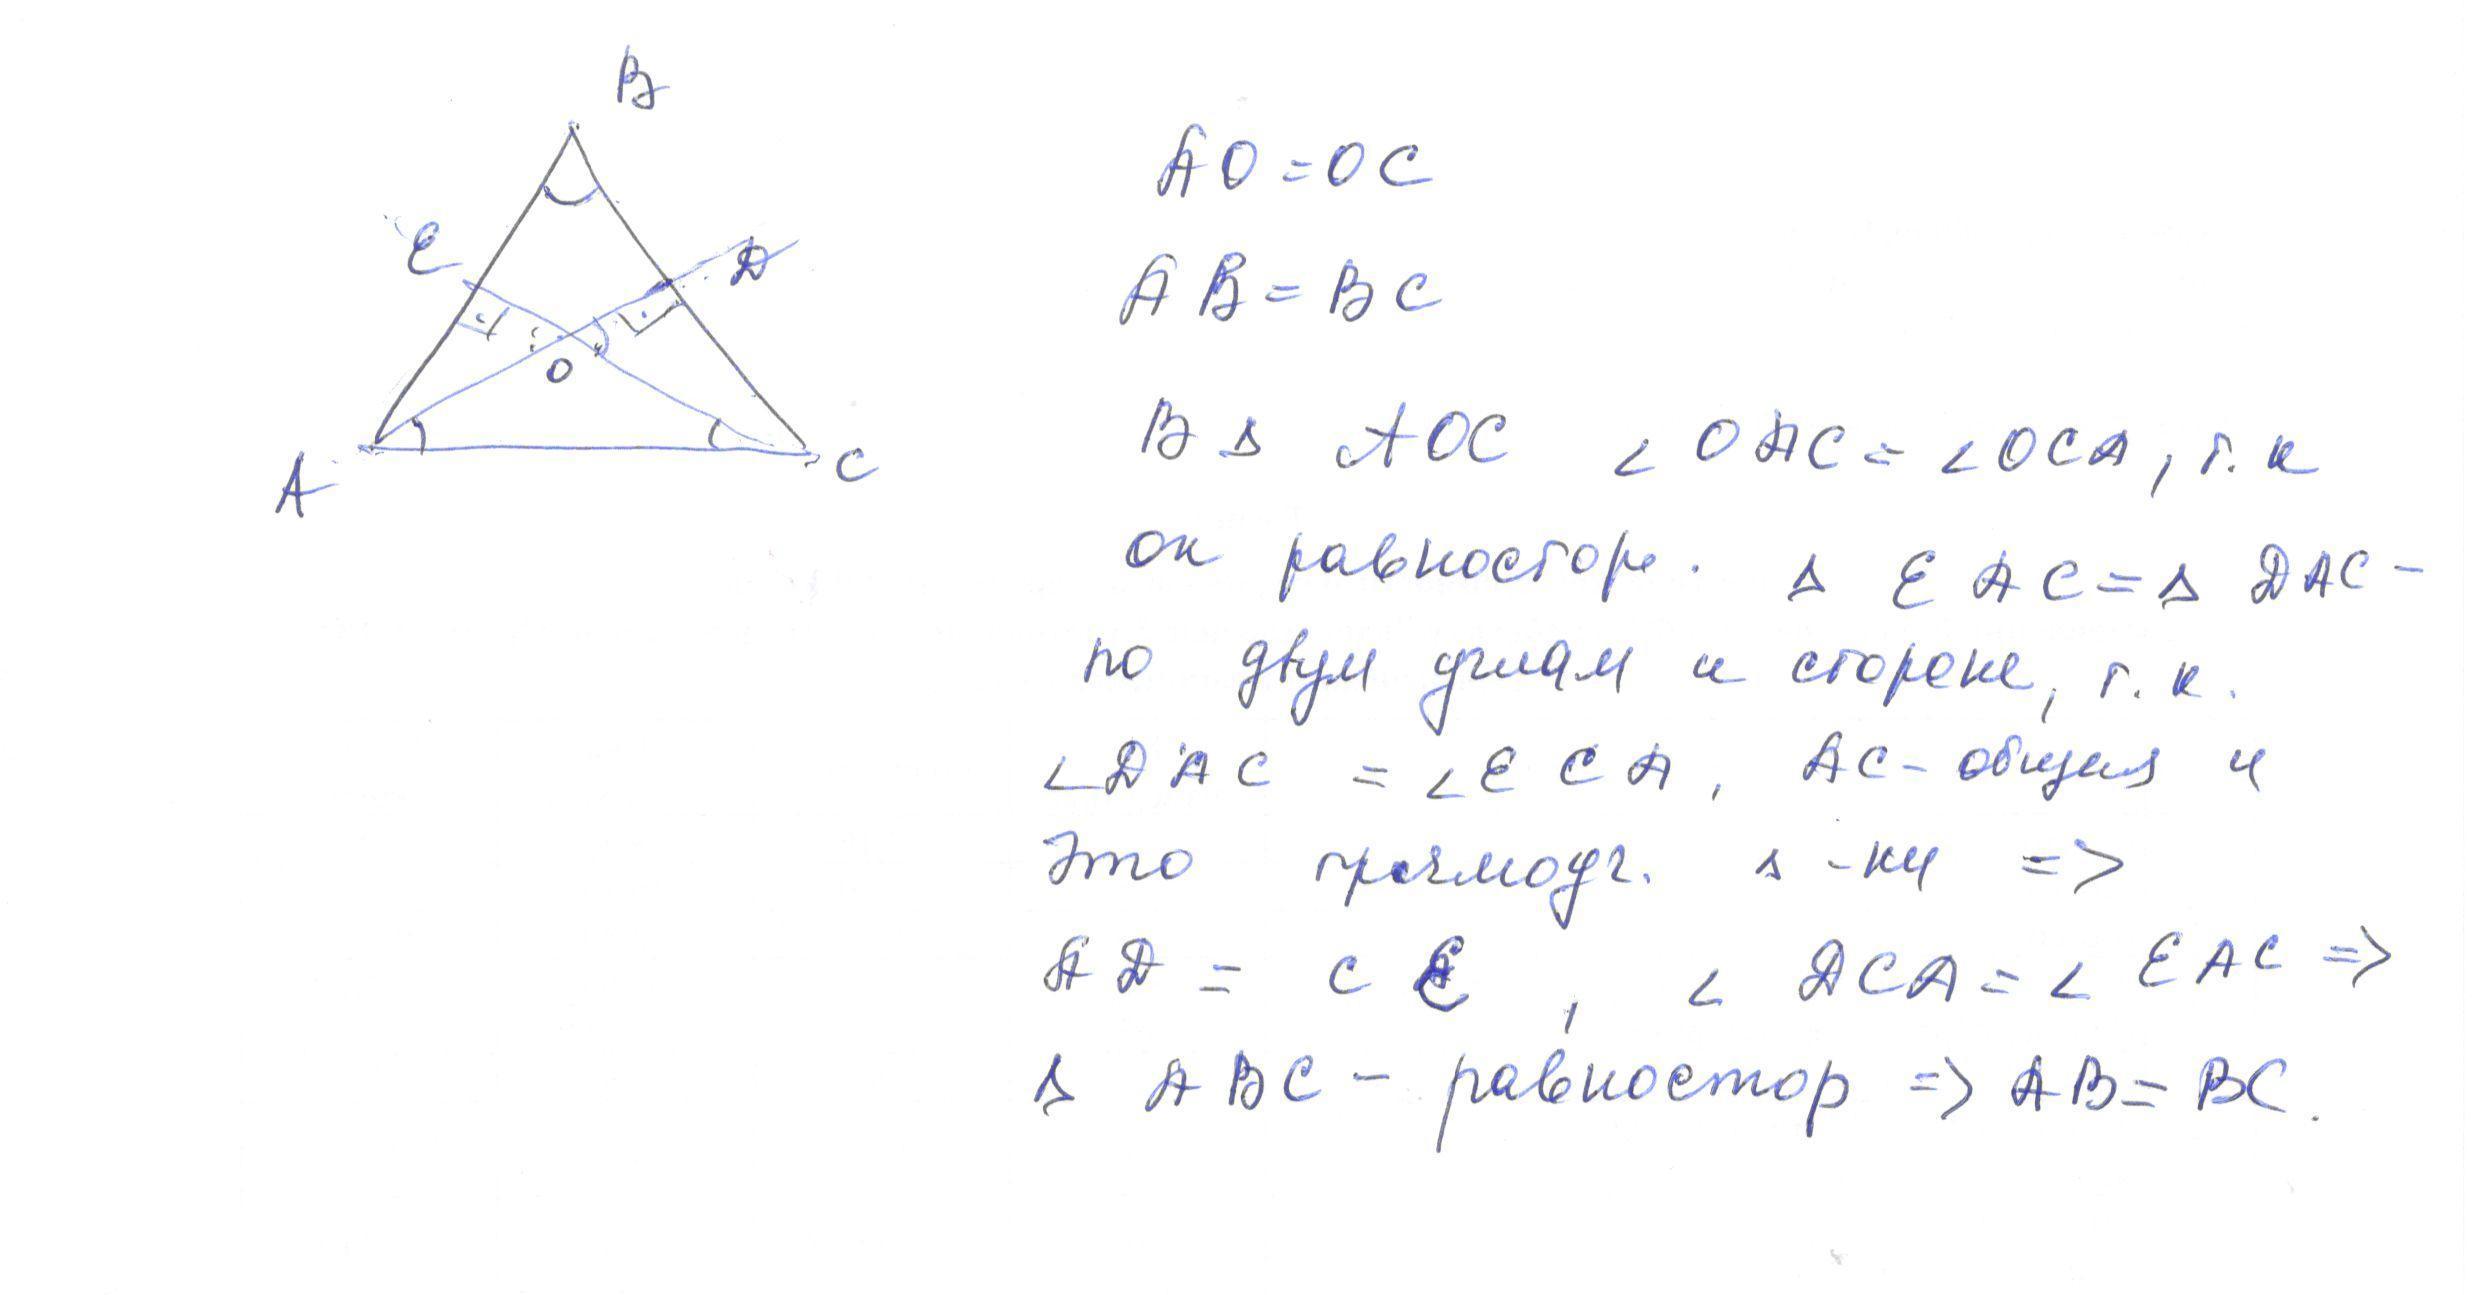 B
E
D
O
A
C
AO=OC
AB=BC
В Δ AOC ∠OAC=∠OCA, т.к
он равностор. Δ EAC=Δ DAC-
по двум углам и стороне, т.к.
∠DAC = ∠ECA, AC-общая и
это прямоуг. Δ-ки =>
AD = CE, ∠DCA=∠EAC =>
Δ ABC - равностор => AB=BC.